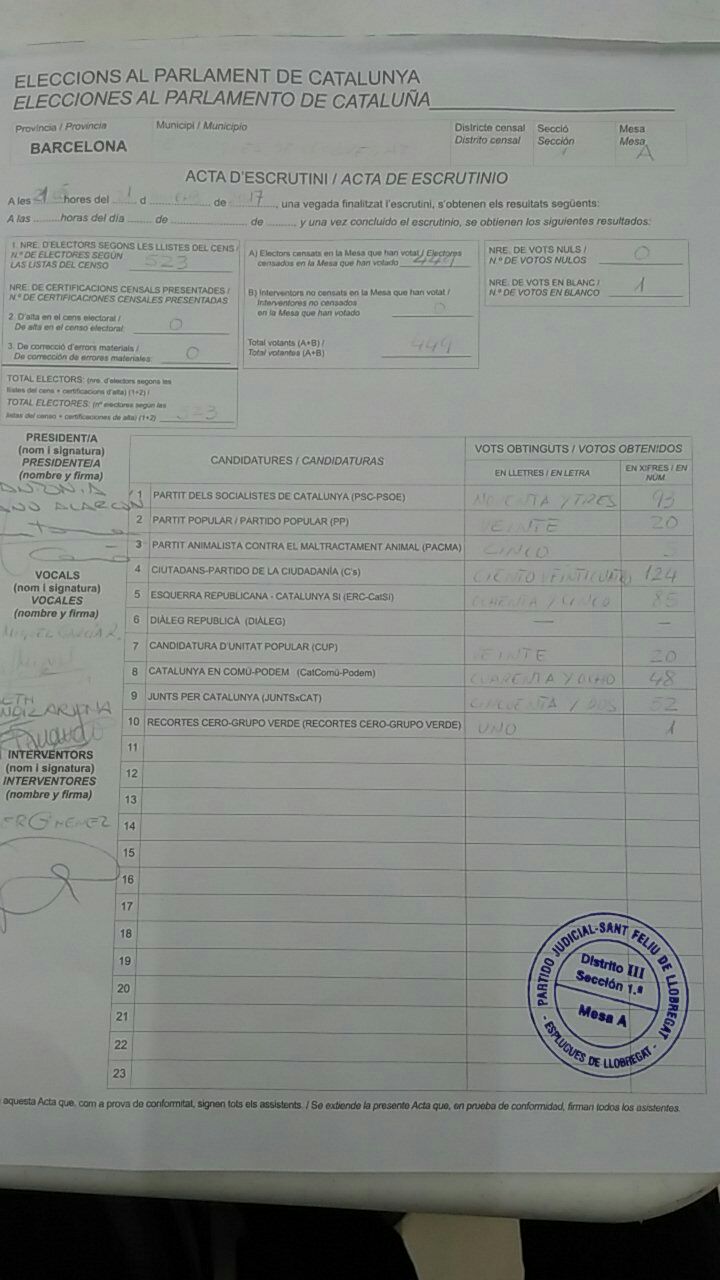 ELECCIONS AL PARLAMENT DE CATALUNYA
ELECCIONES AL PARLAMENTO DE CATALUÑA
Província / Provincia
Municipi / Municipio
Districte censal
Distrito censal
Secció
Sección
1
Mesa
Mesa
A
BARCELONA
ACTA D'ESCRUTINI / ACTA DE ESCRUTINIO
A les hores del 21 d de 17, una vegada finalitzat l'escrutini, s'obtenen els resultats següents:
A las ........horas del día ....... de ........................... de ........, y una vez concluido el escrutinio, se obtienen los siguientes resultados:
1. NRE. D'ELECTORS SEGONS LES LLISTES DEL CENS /
N.º DE ELECTORES SEGÚN
LAS LISTAS DEL CENSO 523
NRE. DE CERTIFICACIONS CENSALS PRESENTADES /
N.º DE CERTIFICACIONES CENSALES PRESENTADAS
2. D'alta en el cens electoral /
De alta en el censo electoral: 0
3. De correcció d'errors materials /
De corrección de errores materiales: 0
TOTAL ELECTORS: (nre. d'electors segons les
llistes del cens + certificacions d'alta) (1+2) /
TOTAL ELECTORES: (nº electores según las
listas del censo + certificaciones de alta) (1+2) 523
A) Electors censats en la Mesa que han votat / Electores
censados en la Mesa que han votado 449
B) Interventors no censats en la Mesa que han votat /
Interventores no censados
en la Mesa que han votado 0
Total votants (A+B) /
Total votantes (A+B) 449
NRE. DE VOTS NULS /
N.º DE VOTOS NULOS 0
NRE. DE VOTS EN BLANC /
N.º DE VOTOS EN BLANCO 1
PRESIDENT/A
(nom i signatura)
PRESIDENTE/A
(nombre y firma)
ALARCON
VOCALS
(nom i signatura)
VOCALES
(nombre y firma)
INTERVENTORS
(nom i signatura)
INTERVENTORES
(nombre y firma)
CANDIDATURES / CANDIDATURAS
VOTS OBTINGUTS / VOTOS OBTENIDOS
EN LLETRES / EN LETRA
EN XIFRES / EN NÚM.
1 PARTIT DELS SOCIALISTES DE CATALUNYA (PSC-PSOE) NOVENTA Y TRES 93
2 PARTIT POPULAR / PARTIDO POPULAR (PP) VEINTE 20
3 PARTIT ANIMALISTA CONTRA EL MALTRACTAMENT ANIMAL (PACMA) CINCO 5
4 CIUTADANS-PARTIDO DE LA CIUDADANÍA (C's) CIENTO VEINTICUATRO 124
5 ESQUERRA REPUBLICANA - CATALUNYA SÍ (ERC-CatSí) OCHENTA Y CINCO 85
6 DIÀLEG REPUBLICÀ (DIÀLEG) — —
7 CANDIDATURA D'UNITAT POPULAR (CUP) VEINTE 20
8 CATALUNYA EN COMÚ-PODEM (CatComú-Podem) CUARENTA Y OCHO 48
9 JUNTS PER CATALUNYA (JUNTSxCAT) CINCUENTA Y DOS 52
10 RECORTES CERO-GRUPO VERDE (RECORTES CERO-GRUPO VERDE) UNO 1
11
12
13
14
15
16
17
18
19
20
21
22
23
PARTIDO JUDICIAL-SANT FELIU DE LLOBREGAT
Distrito III
Sección 1.ª
Mesa A
- ESPLUGUES DE LLOBREGAT -
aquesta Acta que, com a prova de conformitat, signen tots els assistents. / Se extiende la presente Acta que, en prueba de conformidad, firman todos los asistentes.